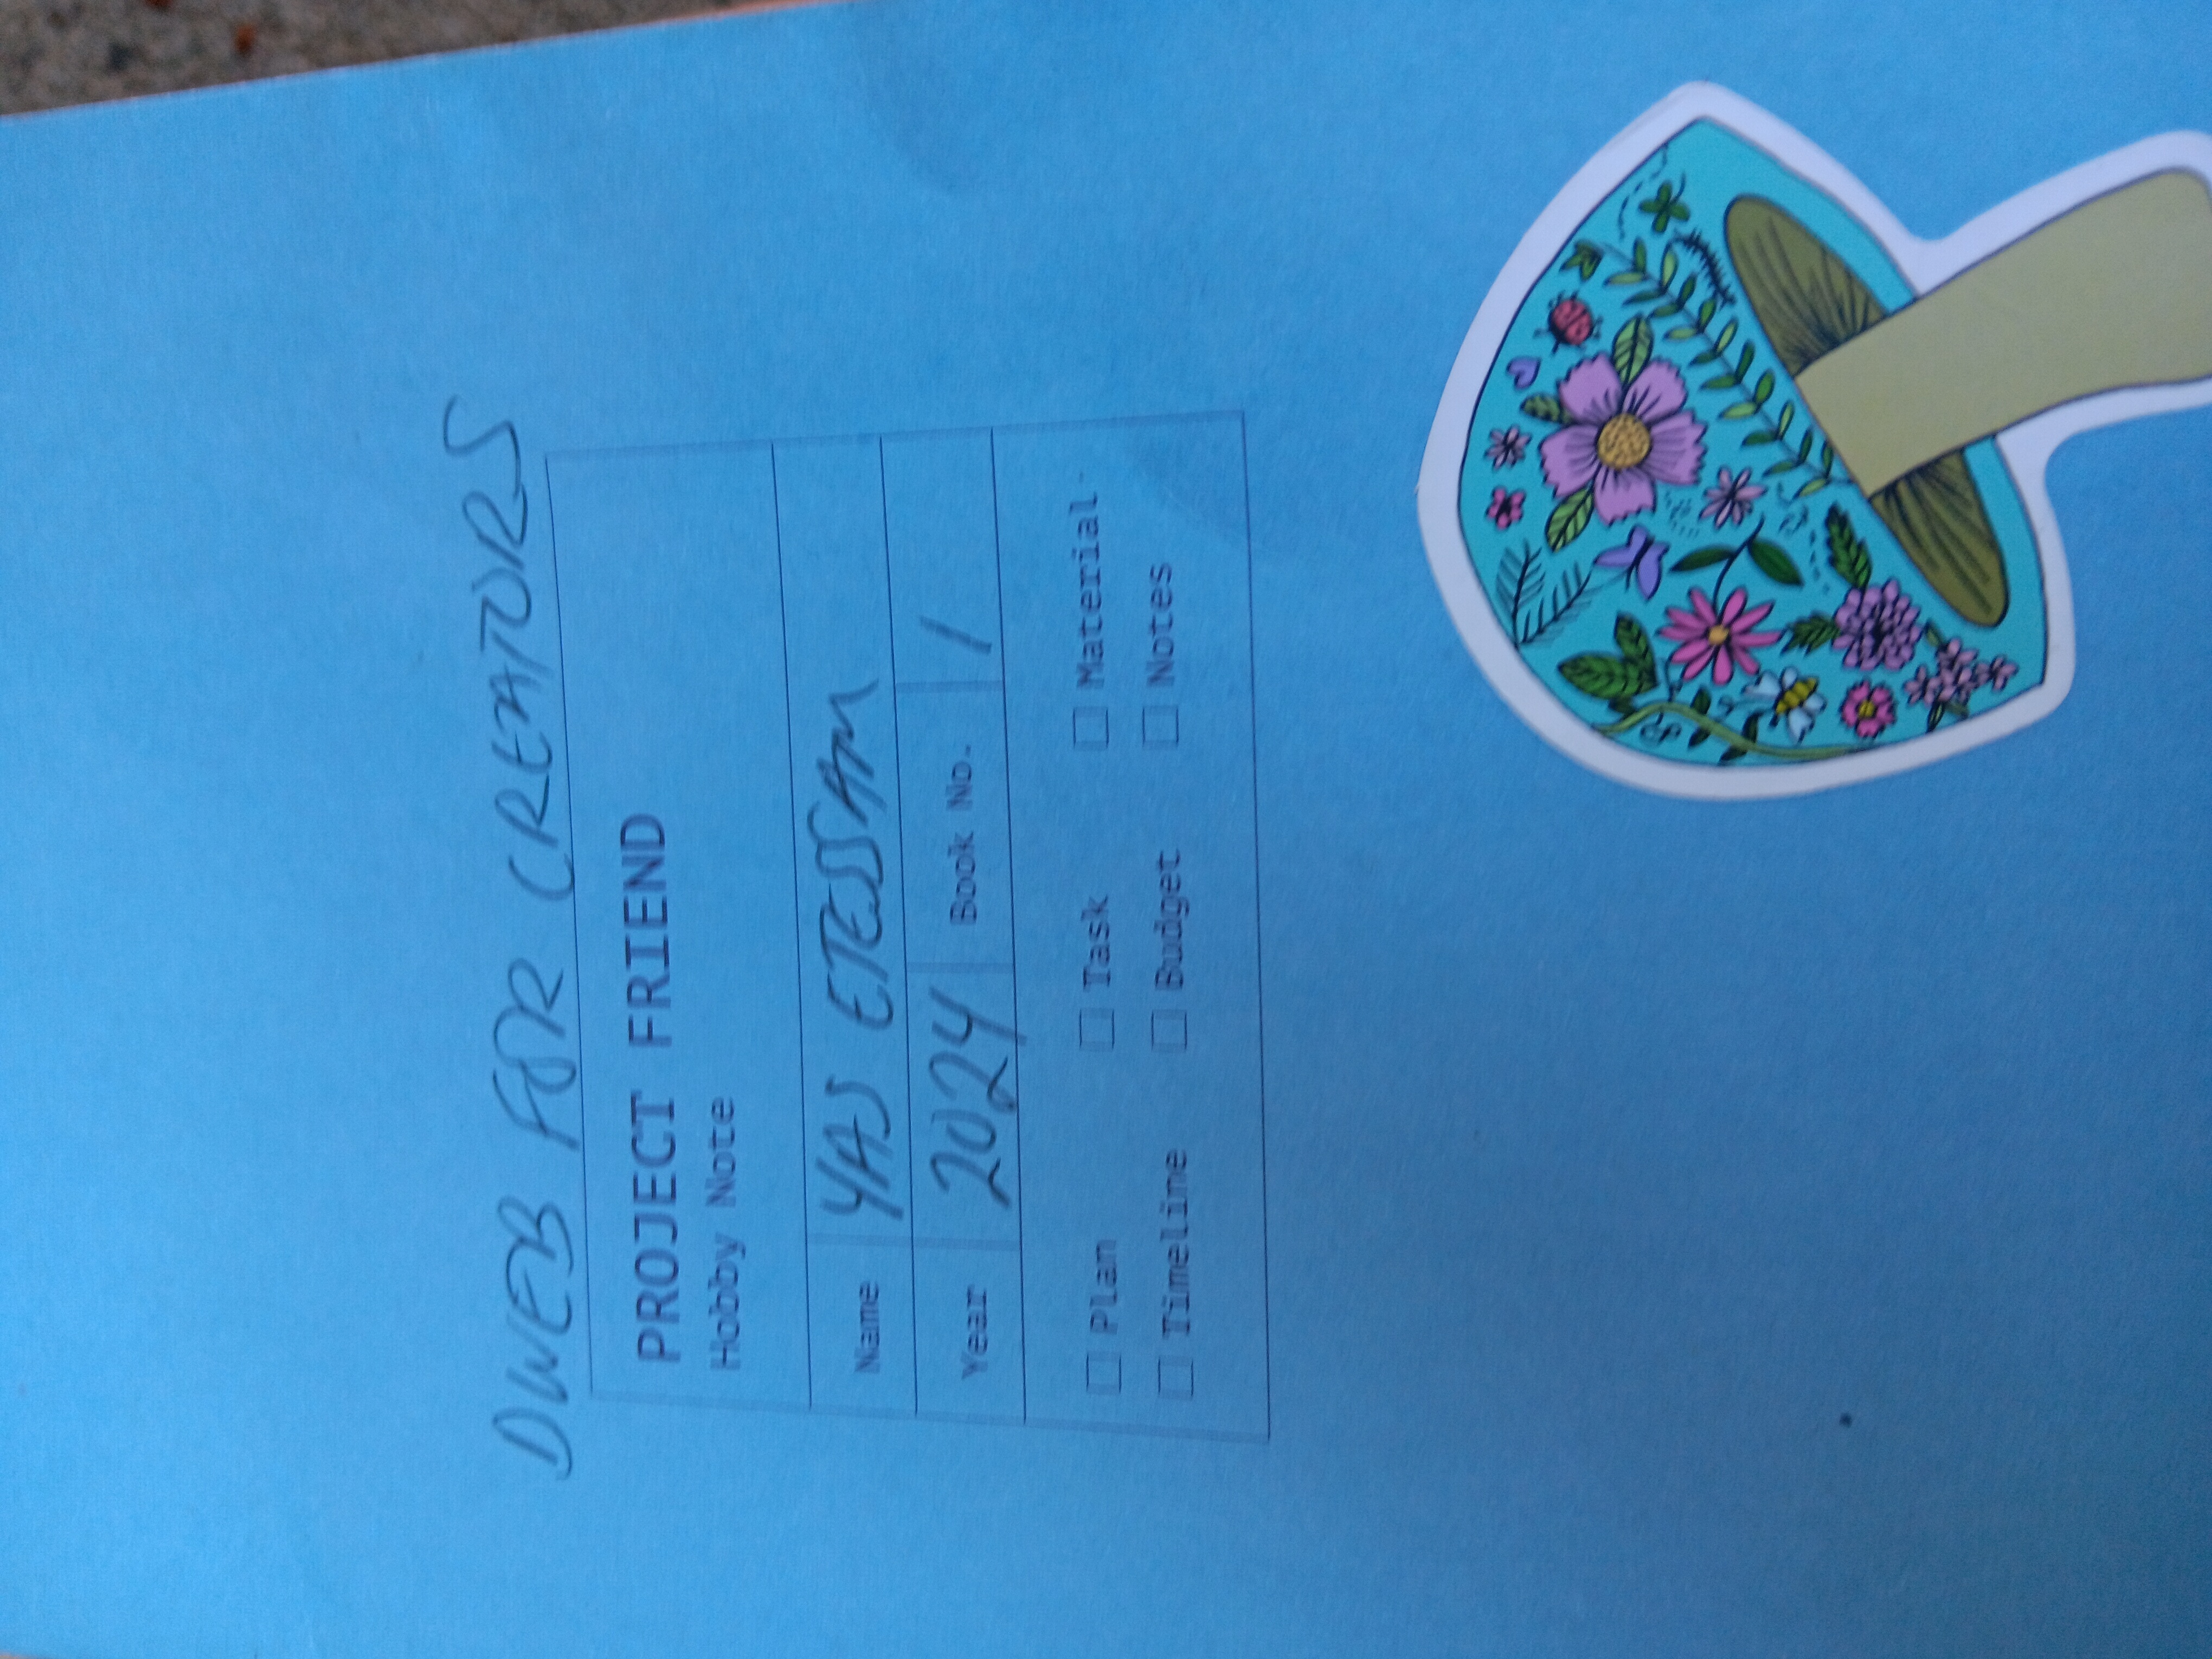 DWEB FOR CREATORS
PROJECT FRIEND
Hobby Note
Name YAS ETESSAM
Year 2024 Book No. 1
Plan Task Material
Timeline Budget Notes